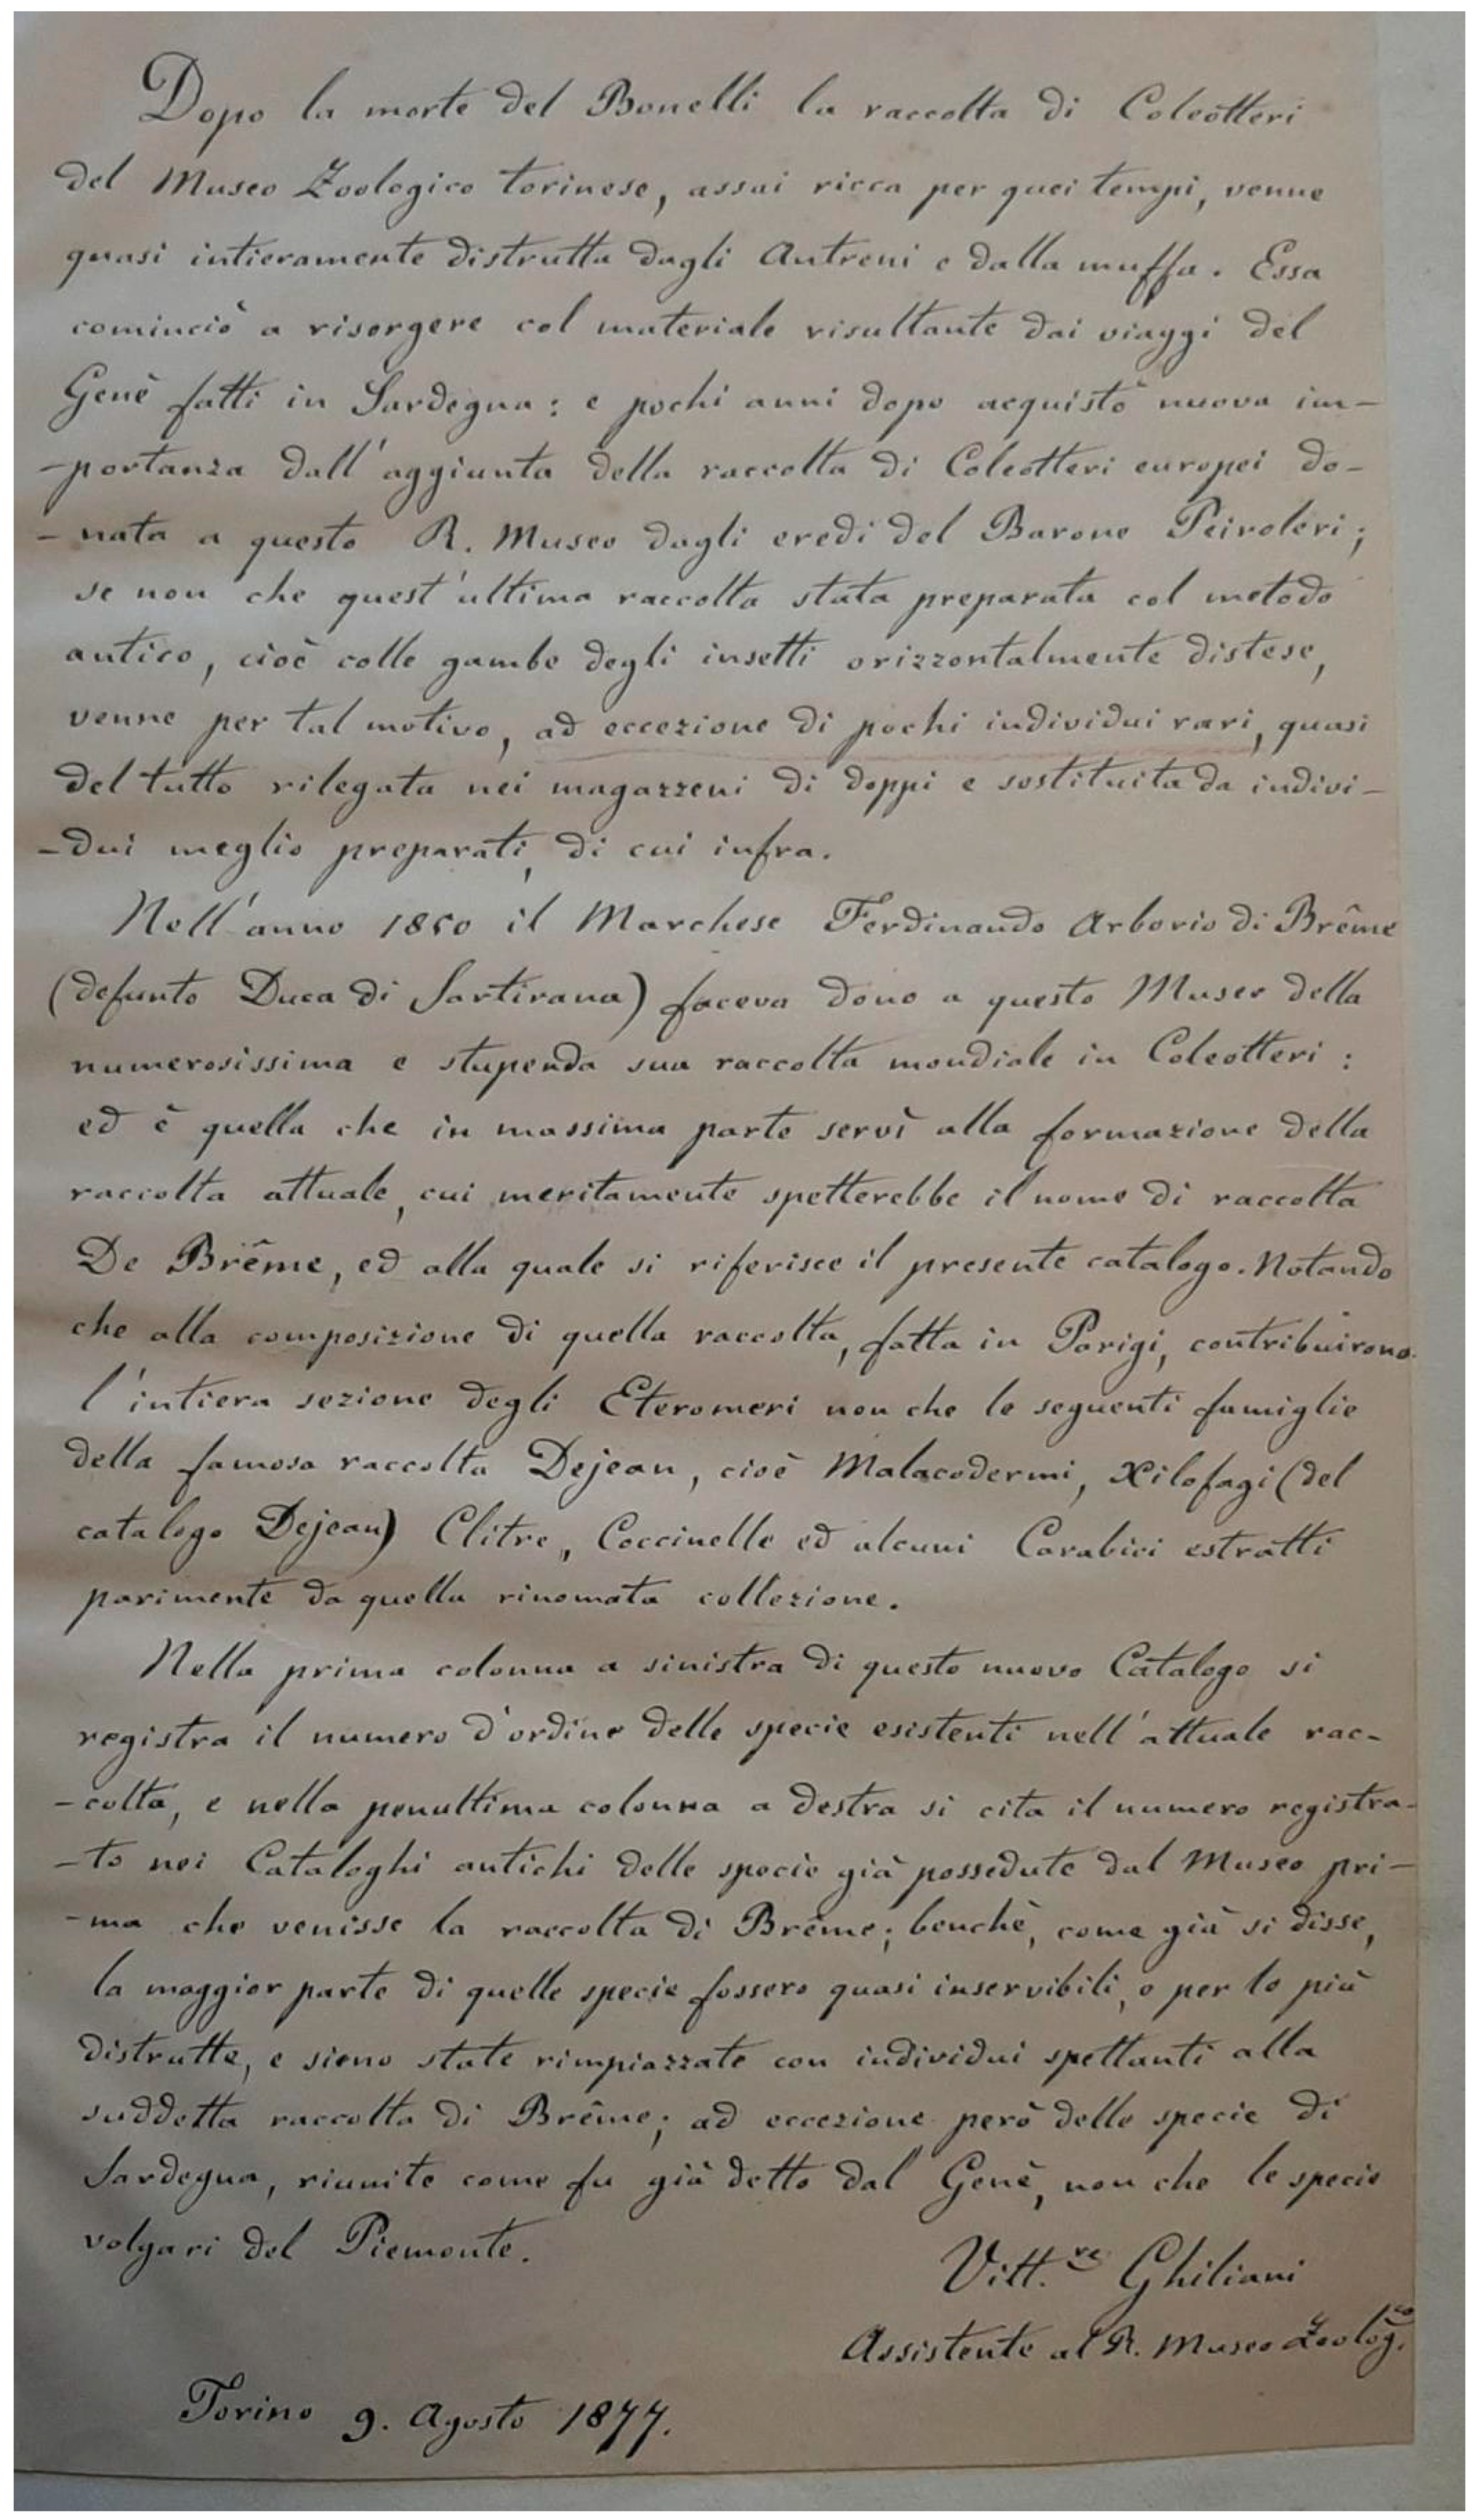 Dopo la morte del Bonelli la raccolta di Coleotteri
del Museo Zoologico torinese, assai ricca per quei tempi, venne
quasi intieramente distrutta dagli Antreni e dalla muffa. Essa
cominciò a risorgere col materiale risultante dai viaggi del
Genè fatti in Sardegna: e pochi anni dopo acquistò nuova im-
-portanza dall'aggiunta della raccolta di Coleotteri europei do-
-nata a questo R. Museo dagli eredi del Barone Peiroleri;
se non che quest'ultima raccolta stata preparata col metodo
antico, cioè colle gambe degli insetti orizzontalmente distese,
venne per tal motivo, ad eccezione di pochi individui rari, quasi
del tutto rilegata nei magazzeni di doppi e sostituita da indivi-
-dui meglio preparati, di cui infra.
Nell'anno 1850 il Marchese Ferdinando Arborio di Brême
(defunto Duca di Sartirana) faceva dono a questo Museo della
numerosissima e stupenda sua raccolta mondiale in Coleotteri:
ed è quella che in massima parte servì alla formazione della
raccolta attuale, cui meritamente spetterebbe il nome di raccolta
De Brême, ed alla quale si riferisce il presente catalogo. Notando
che alla composizione di quella raccolta, fatta in Parigi, contribuirono
l'intiera sezione degli Eteromeri non che le seguenti famiglie
della famosa raccolta Dejean, cioè Malacodermi, Xilofagi (del
catalogo Dejean) Clitre, Coccinelle ed alcuni Carabici estratti
parimente da quella rinomata collezione.
Nella prima colonna a sinistra di questo nuovo Catalogo si
registra il numero d'ordine delle specie esistenti nell'attuale rac-
-colta, e nella penultima colonna a destra si cita il numero registra-
-to nei Cataloghi antichi delle specie già possedute dal Museo pri-
-ma che venisse la raccolta di Brême; benchè, come già si disse,
la maggior parte di quelle specie fossero quasi inservibili, o per lo più
distrutte, e sieno state rimpiazzate con individui spettanti alla
suddetta raccolta di Brême; ad eccezione però delle specie di
Sardegna, riunite come fu già detto dal Genè, non che le specie
volgari del Piemonte.
Vitt.re Ghiliani
Assistente al R. Museo Zoolog.co
Torino 9. Agosto 1877.